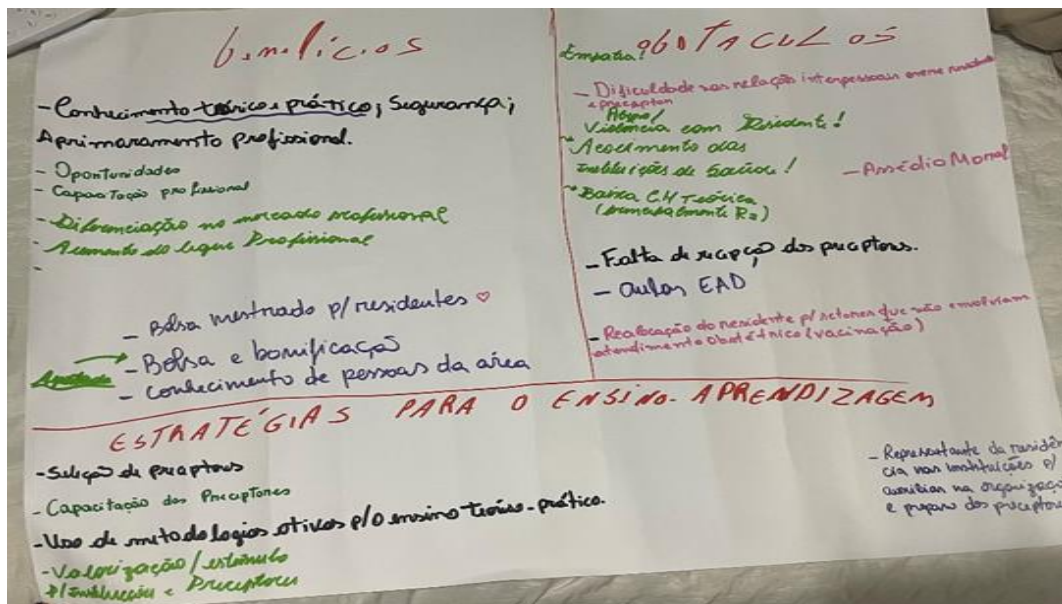 benefícios
- Conhecimento teórico e prático; Segurança;
Aprimoramento profissional.
- Oportunidades
- Capacitação profissional
- Diferenciação no mercado profissional
- Aumento do leque Profissional
-
- Bolsa mestrado p/ residentes ♡
- Bolsa e bonificação
- conhecimento de pessoas da área
obstaculos
Empatia!
- Dificuldade nas relação interpessoais entre
e preceptor
Violência com Residente!
~ Acolhimento das
Instituições de Saúde!
- Assédio Moral
~ Baixa CH Teórica
(principalmente R2)
- Falta de recepção dos preceptores.
- aulas EAD
- Realocação do residente p/ setores que não envolviam
atendimento obstétrico (vacinação)
ESTRATÉGIAS PARA O ENSINO-APRENDIZAGEM
- Seleção de preceptores
- Capacitação dos Preceptores
- Uso de metodologias ativas p/ o ensino teórico-prático.
- Valorização / estímulo
p/ Instituições e Preceptores
- Representante da residên
cia nas instituições p/
auxiliar na organização
e preparo dos preceptores